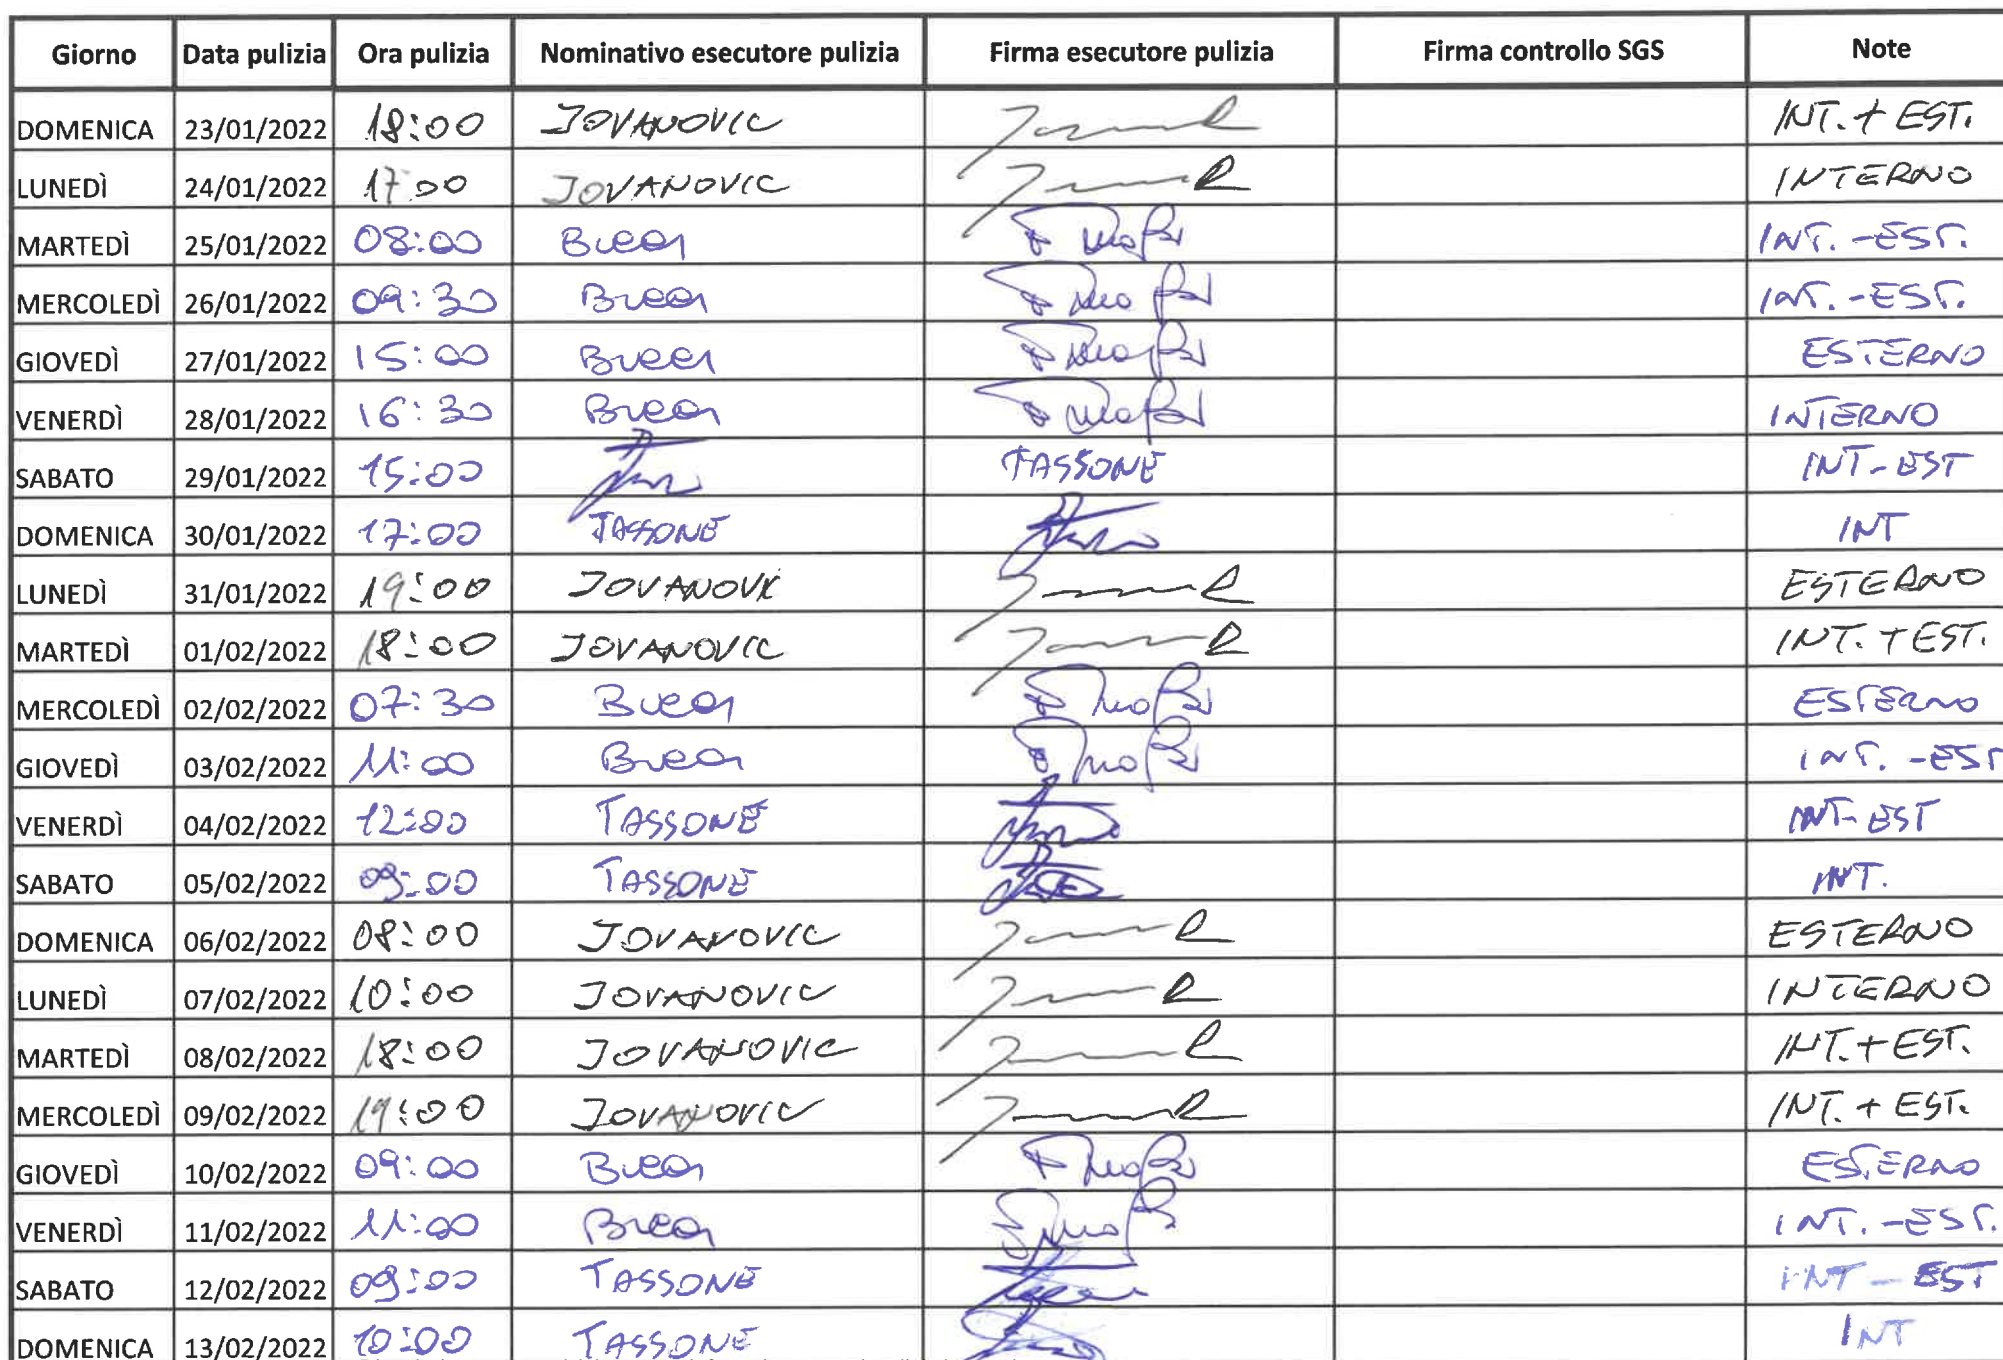 Giorno Data pulizia Ora pulizia Nominativo esecutore pulizia Firma esecutore pulizia Firma controllo SGS Note
DOMENICA 23/01/2022 18:00 JOVANOVIC INT. + EST.
LUNEDÌ 24/01/2022 17:00 JOVANOVIC INTERNO
MARTEDÌ 25/01/2022 08:00 Bucci INT. - EST.
MERCOLEDÌ 26/01/2022 09:30 Bucci INT. - EST.
GIOVEDÌ 27/01/2022 15:00 Bucci ESTERNO
VENERDÌ 28/01/2022 16:30 Bucci INTERNO
SABATO 29/01/2022 15:00 TASSONE INT - EST
DOMENICA 30/01/2022 17:00 TASSONE INT
LUNEDÌ 31/01/2022 19:00 JOVANOVIC ESTERNO
MARTEDÌ 01/02/2022 18:00 JOVANOVIC INT. + EST.
MERCOLEDÌ 02/02/2022 07:30 Bucci ESTERNO
GIOVEDÌ 03/02/2022 11:00 Bucci INT. - EST
VENERDÌ 04/02/2022 12:00 TASSONE INT - EST
SABATO 05/02/2022 09:00 TASSONE INT.
DOMENICA 06/02/2022 08:00 JOVANOVIC ESTERNO
LUNEDÌ 07/02/2022 10:00 JOVANOVIC INTERNO
MARTEDÌ 08/02/2022 18:00 JOVANOVIC INT. + EST.
MERCOLEDÌ 09/02/2022 19:00 JOVANOVIC INT. + EST.
GIOVEDÌ 10/02/2022 09:00 Bucci ESTERNO
VENERDÌ 11/02/2022 11:00 Bucci INT. - EST.
SABATO 12/02/2022 09:00 TASSONE INT - EST
DOMENICA 13/02/2022 10:00 TASSONE INT